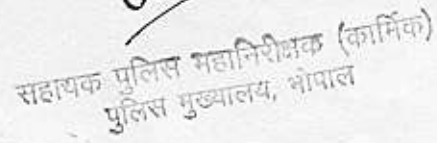 सहायक पुलिस महानिरीक्षक (कार्मिक)
पुलिस मुख्यालय, भोपाल